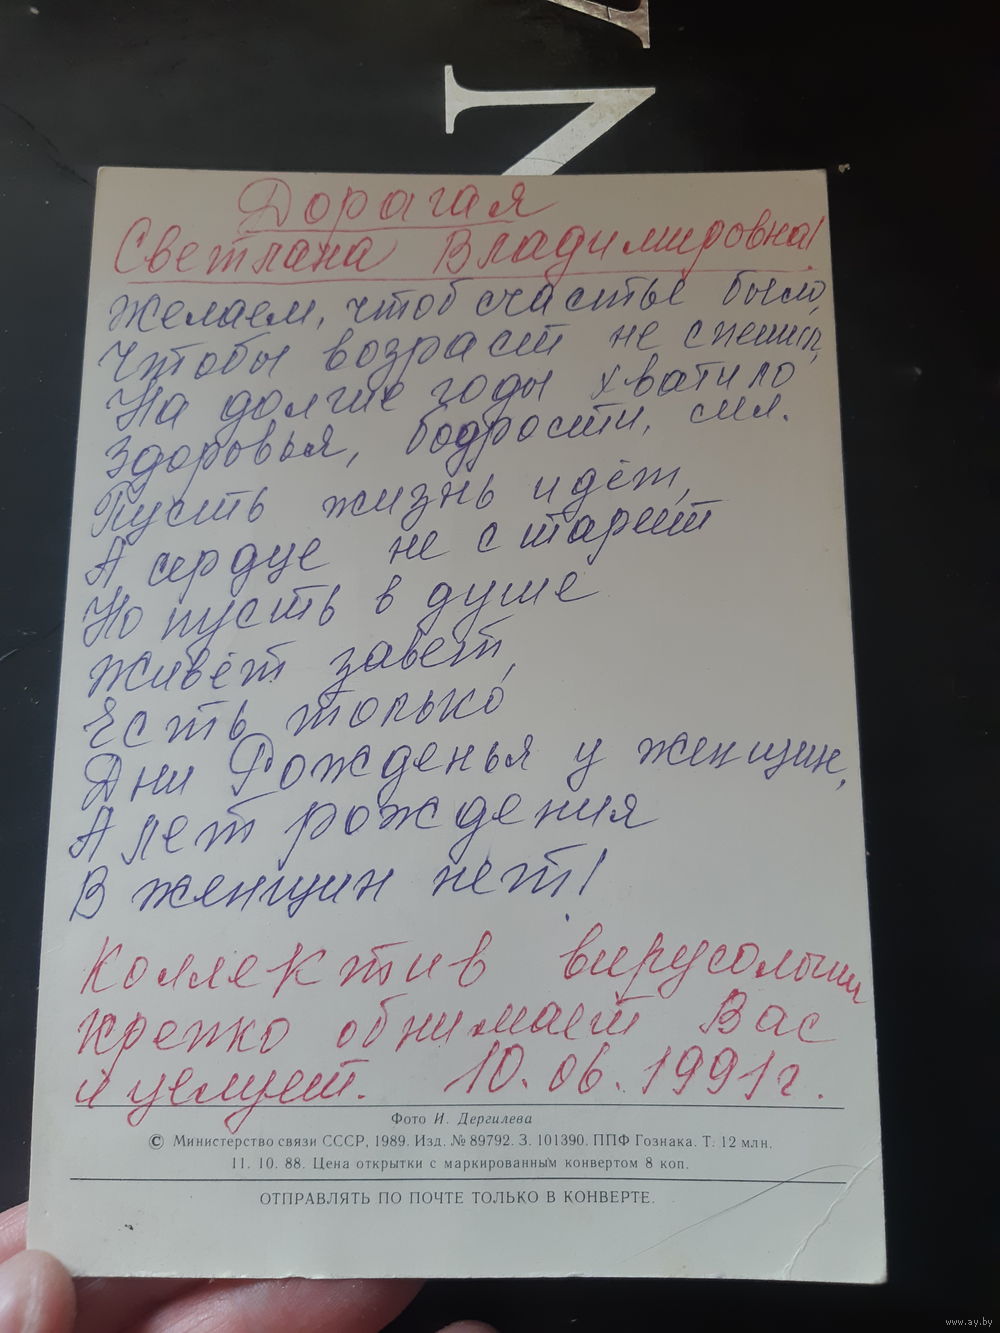 Дорогая
Светлана Владимировна!
Желаем, чтоб счастье было,
Чтобы возраст не спешил,
На долгие годы хватило
Здоровья, бодрости, сил.
Пусть жизнь идёт,
А сердце не стареет
Но пусть в душе
живёт завет,
Есть только
Дни Рожденья у женщин,
А лет рождения
В женщин нет!
Коллектив
крепко обнимает Вас
и целует. 10.06.1991г.
Фото И. Дергилева
© Министерство связи СССР, 1989. Изд. № 89792. З. 101390. ППФ Гознака. Т. 12 млн.
11. 10. 88. Цена открытки с маркированным конвертом 8 коп.
ОТПРАВЛЯТЬ ПО ПОЧТЕ ТОЛЬКО В КОНВЕРТЕ.
www.ay.by